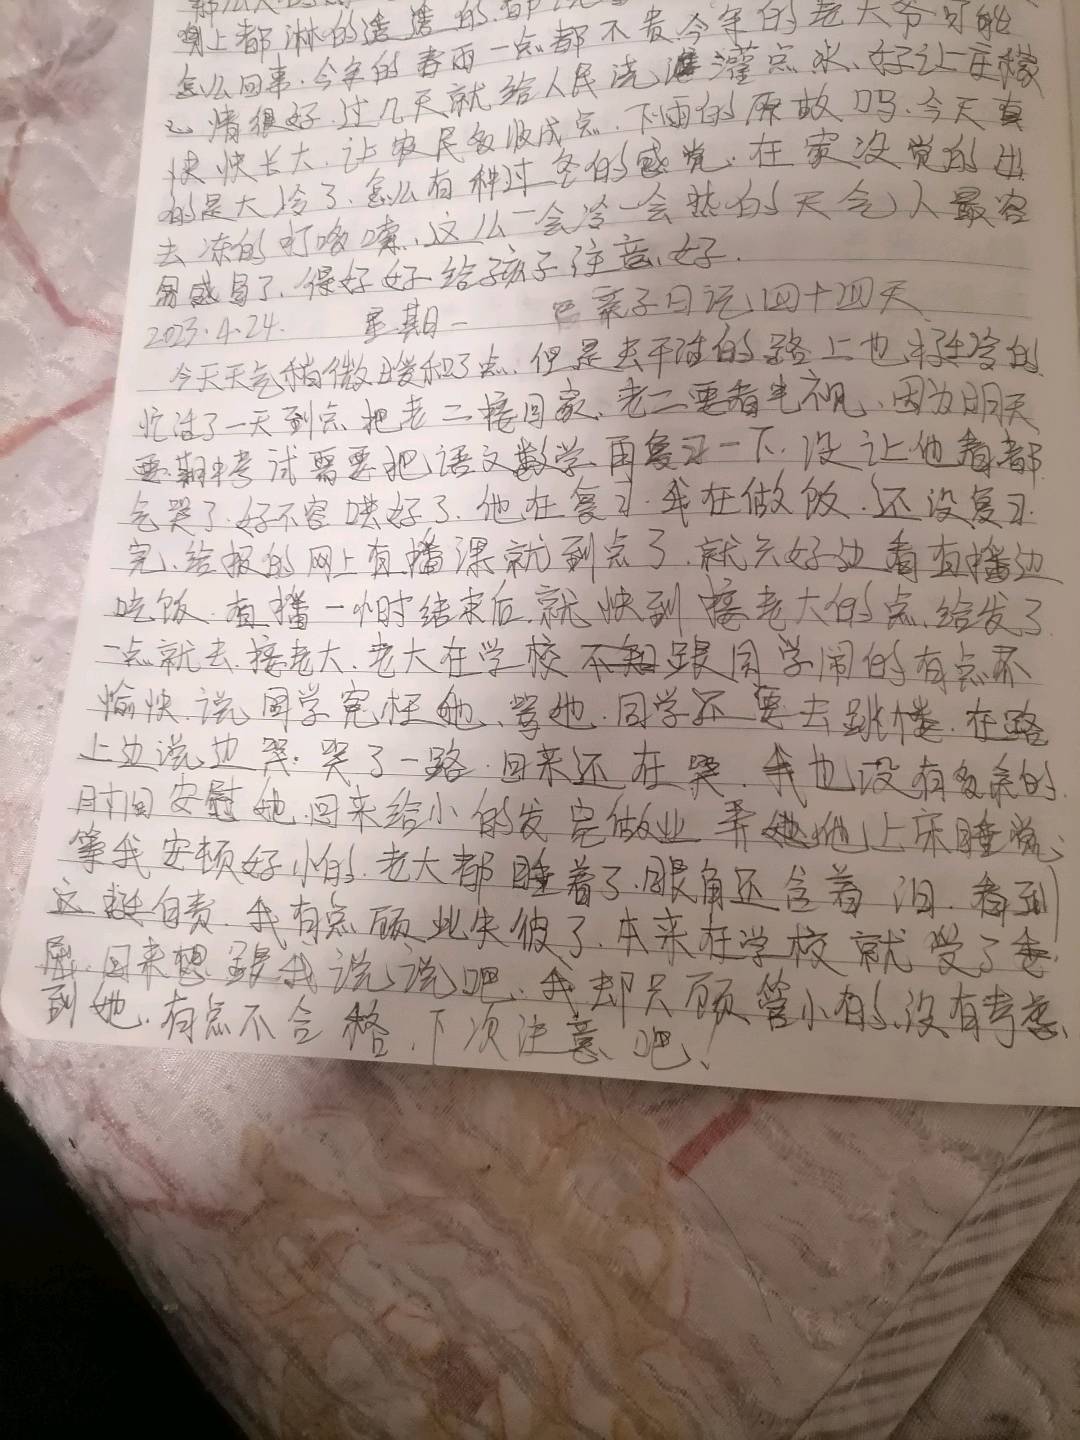 身上都淋的透透的.都
怎么回事.今年的春雨一点都不贵.今年的老天爷可能
心情很好.过几天就给人民浇灌点水、好让庄稼
快快长大.让农民多收成点.下雨的原故吗.今天真
的是大冷了.怎么有种过冬的感觉.在家没觉的出
去冻的叮咯嗦.这么一会冷一会热的天气人最容
易感冒了.得好好给孩子注意好.
2023.4.24. 星期一 亲子日记四十四天
今天天气稍微暖和了点.但是去干活的路上也挺冷的
忙活了一天到点把老二接回家、老二要看电视、因为明天
要期中考试需要把语文数学再复习一下.没让他看都
气哭了.好不容哄好了.他在复习.我在做饭.还没复习
完、给报的网上直播课就到点了.就只好边看直播边
吃饭.直播一小时结束后.就快到接老大的点.给发了
一点就去接老大.老大在学校不知跟同学闹的有点不
愉快.说同学冤枉她、骂她.同学还要去跳楼.在路
上边说边哭.哭了一路.回来还在哭.我也没有多余的
时间安慰她.回来给小的发完做业弄她他上床睡觉
等我安顿好小的.老大都睡着了.眼角还含着泪.看到
这挺自责.我有点顾此失彼了.本来在学校就受了委
屈.回来想跟我说说吧、我却只顾管小的.没有考虑
到她.有点不合格、下次注意吧!